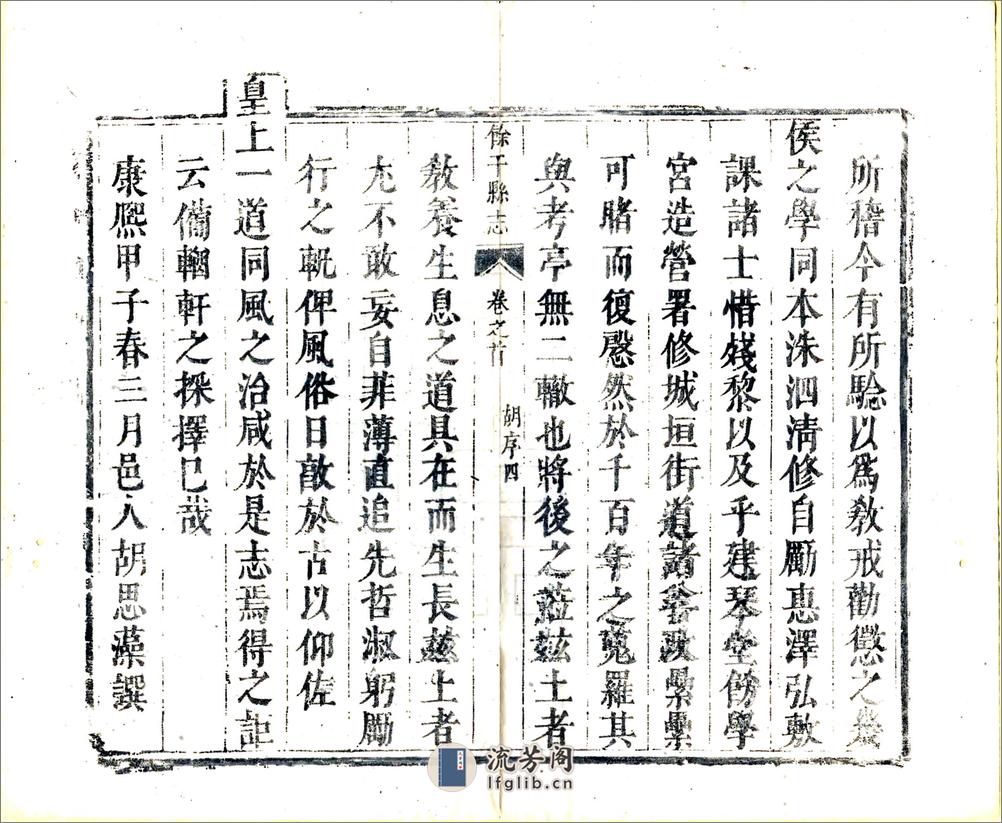 所稽今有所驗以爲教戒勸懲之幾
侯之學同本洙泗清修自勵惠澤弘敷
課諸士惜殘黎以及乎建琴堂餙學
宮造營署修城垣街道諸善政纍纍
可睹而復慇然於千百年之蒐羅其
與考亭無二轍也將後之蒞茲土者
餘干縣志
卷之首
胡序四
教養生息之道具在而生長茲土者
尤不敢妄自菲薄直追先哲淑躬勵
行之軌俾風俗日敦於古以仰佐
皇上一道同風之治咸於是志焉得之詎
云備輶軒之採擇已哉
康熈甲子春三月邑人胡思藻譔
流芳阁
lfglib.cn